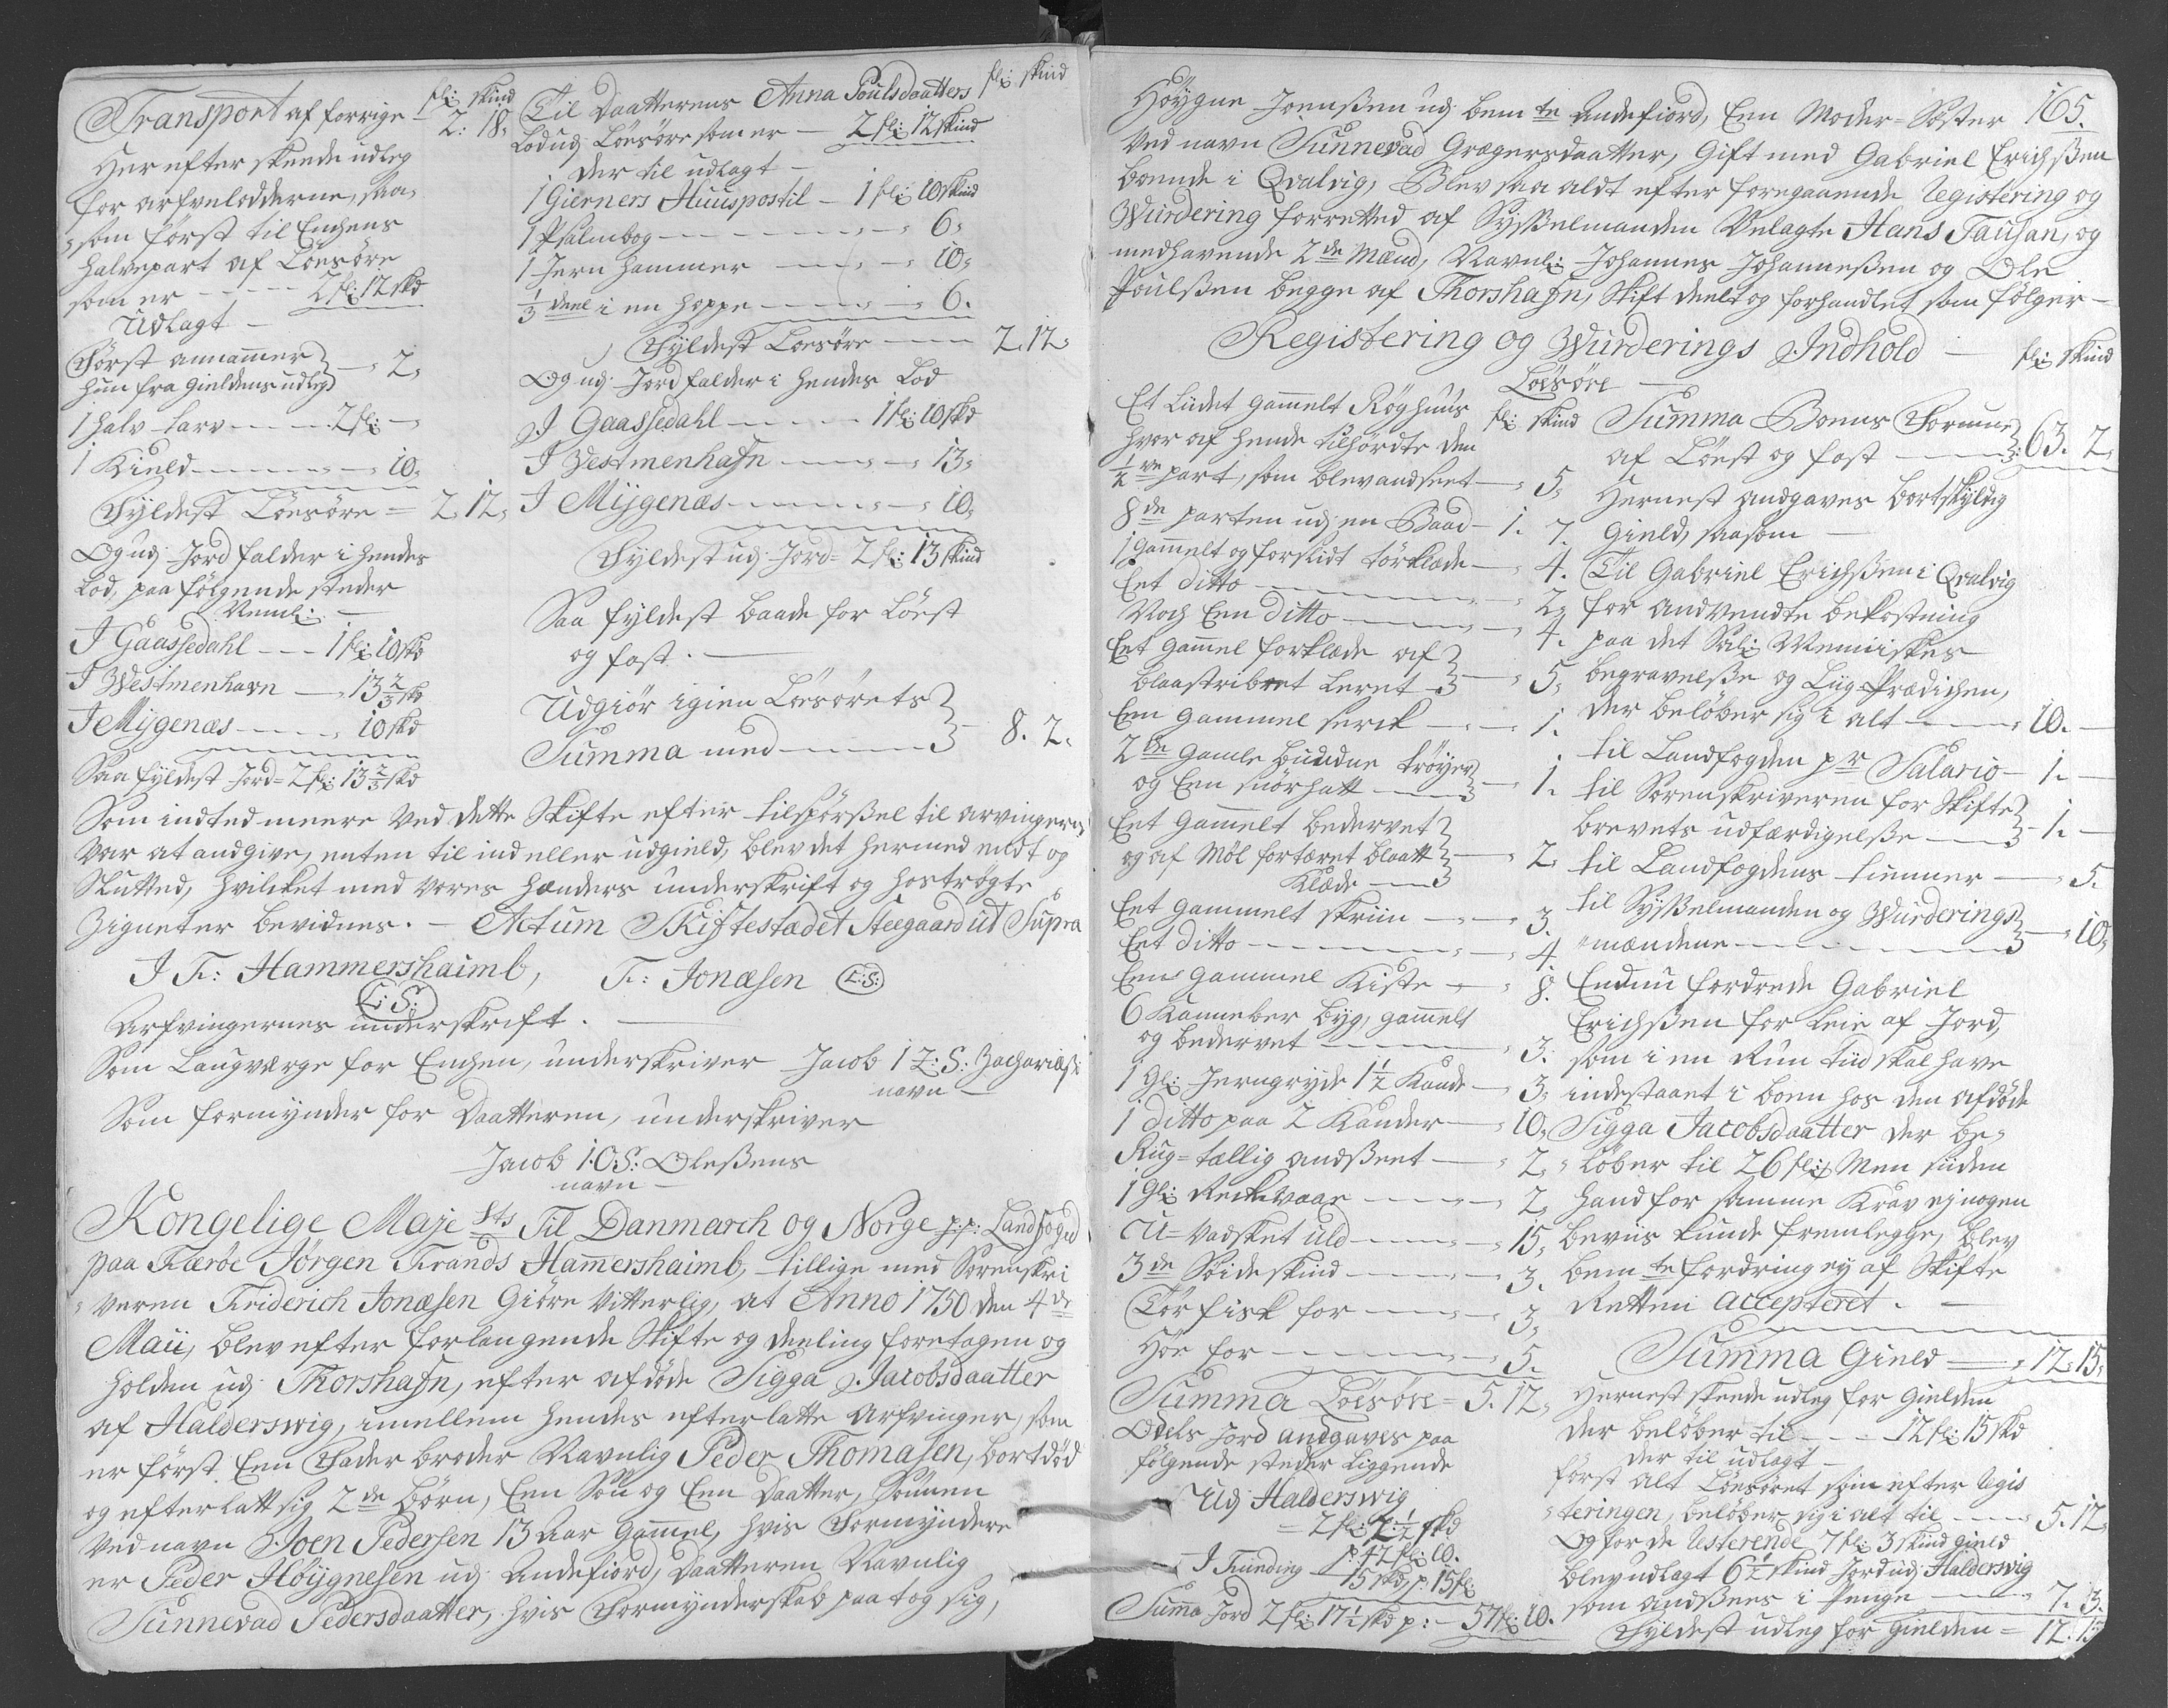 Transport af forrige — fl: skind 2: 18,
Her efter skeede udleg
for arfvelodderne, saa,
„som först til Enchens
halvepart af Löesöre
som er — 2 fl: 12 skd
Udlagt —
Först annammer
hun fra gieldens udleg — 2,
1 halv tarv — 2 fl: —
1 Kield — 10,
Fyldest Löesöre = 2, 12,
Og udj Jord falder i hendes
Lod, paa fölgende steder
Neml: —
J Gaassedahl — 1 fl: 10 skd
J Westmenhavn — 13 2/3 skd
J Mijgenæs — 10 skd
Saa fyldest Jord = 2 fl: 13 2/3 skd
Til Daatterens Anna Poulsdaatters fl: skind
Lod udj Löesöre som er — 2 fl: 12 skind
der til udlagt —
1 Gierners Huuspostil — 1 fl: 10 skind
1 Psalmbog — 6,
1 Jern hammer — 10,
1/3 deel i en hoppe — 6.
Fyldest Löesöre — 2, 12,
Og udj Jord falder i hendes Lod
J Gaassedahl — 1 fl: 10 skd
J Westmenhafn — 13,
J Mijgenæs — 10,
Fyldest udj Jord = 2 fl: 13 skind
Saa fyldest baade for Löest
og fast. —
Udgiör igien Löesörets
Summa med — 8. 2.
Som indted meere ved dette Skifte efter tilspörßel til arvingerne
var at andgive, enten til ind eller udgield, blev det hermed endt og
Slutted, hvilcket med vores hænders underskrift og hoströgte
Zigneter bevidnes. — Actum Skiftestædet Steegaard ut Supra
J F: Hammershaimb, F: Jonæsen (L:S:)
(L:S:)
Arfvingernes underskrift. —
Som Laugværge for Enchen, underskriver Jacob I Z: S: Zachariæß:
navn —
Som formynder for Daatteren, underskriver
Jacob I:O:S: Oleßens
navn —
Kongelige Maje sts Til Danmarch og Norge p:p: Landfoged
paa Færöe Jörgen Frands Hamershaimb, tillige med Sorenskri
„veren Friderich Jonæsen Giöre Vitterlig, at Anno 1730 den 4de
Maii, blev efter forlangende Skifte og deeling foretagen og
holden udj Thorshafn, efter afdöde Sigga Jacobsdaatter
af Halderswig, imellem hendes efterlatte Arfvinger, som
er först Een Fader broder Navnlig Peder Thomasen, bortdöd
og efterlatt sig 2de börn, Een Sön og Een Daatter, Sönnen
ved navn Joen Pedersen 13 Aar Gamel, hvis Formyndere
er Peder Höijgnesen udj Andefiord, Daatteren Navnlig
Sunnevad Pedersdaatter, hvis Formynderskab paatog sig,
165.
Höygne Joenßen udj bem te Andefiord, Een Moder-Söster
ved navn Sunnevad Grægersdaatter, Gift med Gabriel Erichßen
boende i Qvalvig, Blev saa aldt efter foregaaende Registering og
Wurdering forretted af Sysselmanden Velagte Hans Tausan, og
medhavende 2de Mænd, Navnl: Johannes Johanneßen og Ole
Poulßen begge af Thorshafn, Skift deelt og forhandlet som fölger —
Registering og Wurderings Indhold — fl: skind
Löesöre —
Et Lidet Gammelt Röghuus fl: skind
hvor af hende tilhördte den
1/2 ve part, som blev andseet — 5,
8de parten udj en Baad — 1. 7.
1 Gammelt og forslidt törklæde — 4.
Eet ditto — 2,
Noch Een ditto — 4.
Eet Gamel forklæde af
blaastribet Leret — 5,
Een Gammel serck — 1.
2de Gamle bundne tröyer
og Een snörhatt — 1.
Eet Gamelt bedervet
og af Möl fortæret blaatt
Klæde — 2,
Eet Gammelt skriin — 3.
Eet ditto — 4
Een Gammel Kiste — 8.
6 Kanneber byg, gamelt
og bedervet — 3.
1 Gl: Jerngryde 1 1/2 Kande — 3,
1 ditto paa 2 Kander — 10,
Rug-tællig andßeet — 2,
1 Gl: Reckevaar — 2,
U-vadsket uld — 15,
3de Söideskind — 3.
Tör fisk for — 3,
Hör for — 5.
Summa Löesöre = 5. 12,
Odels Jord andgaves paa
fölgende steder liggende
Udj Halderswig
= 2 fl: 2 1/2 skd
p: 42 fl: 10.
J Funding — 15 skd, p: 15 fl:
Suma Jord 2 fl: 17 1/2 skd p: — 57 fl: 10.
Summa Boens Formue
af Löest og fast — 63. 2,
Hernest andgaves bortskyldig
Gield, saasom —
Til Gabriel Erichßen i Qvalvig
for andvendte bekostning
paa det Sal: Menniskes
begravelße og Liig-Prædichen,
der belöber sig i alt — 10. —
til Landfogden pr Salario — 1. —
til Sorenskriveren for Skifte
brevets udfærdigelße — 1. —
til Landfogdens tienner — 5.
til Sysselmanden og Wurderings
„mændene — 10,
Endnu fordrede Gabriel
Erichßen for leie af Jord,
som i en Rum tiid skal have
indestaaet i boen hos den afdöde
Sigga Jacobsdaatter der be,
„löber til 26 fl: Men siden
hand for samme Krav ej nogen
beviis kunde fremlegge, blev
bem te fordring ej af Skifte
Retten accepteret. —
Summa Gield — 12, 15,
Hernest skeede udleg for Gielden
der belöber til — 12 fl: 15 skd
der til udlagt —
först alt Löesöret som efter Regis
„teringen, belöber sig i alt til — 5. 12,
Og for de Resterende 7 fl: 3 skind gield
blev udlagt 6 1/2 skind Jord udj Halderswig
som andßees i Penge — 7. 3.
Fyldest udleg for Gielden = 12. 15